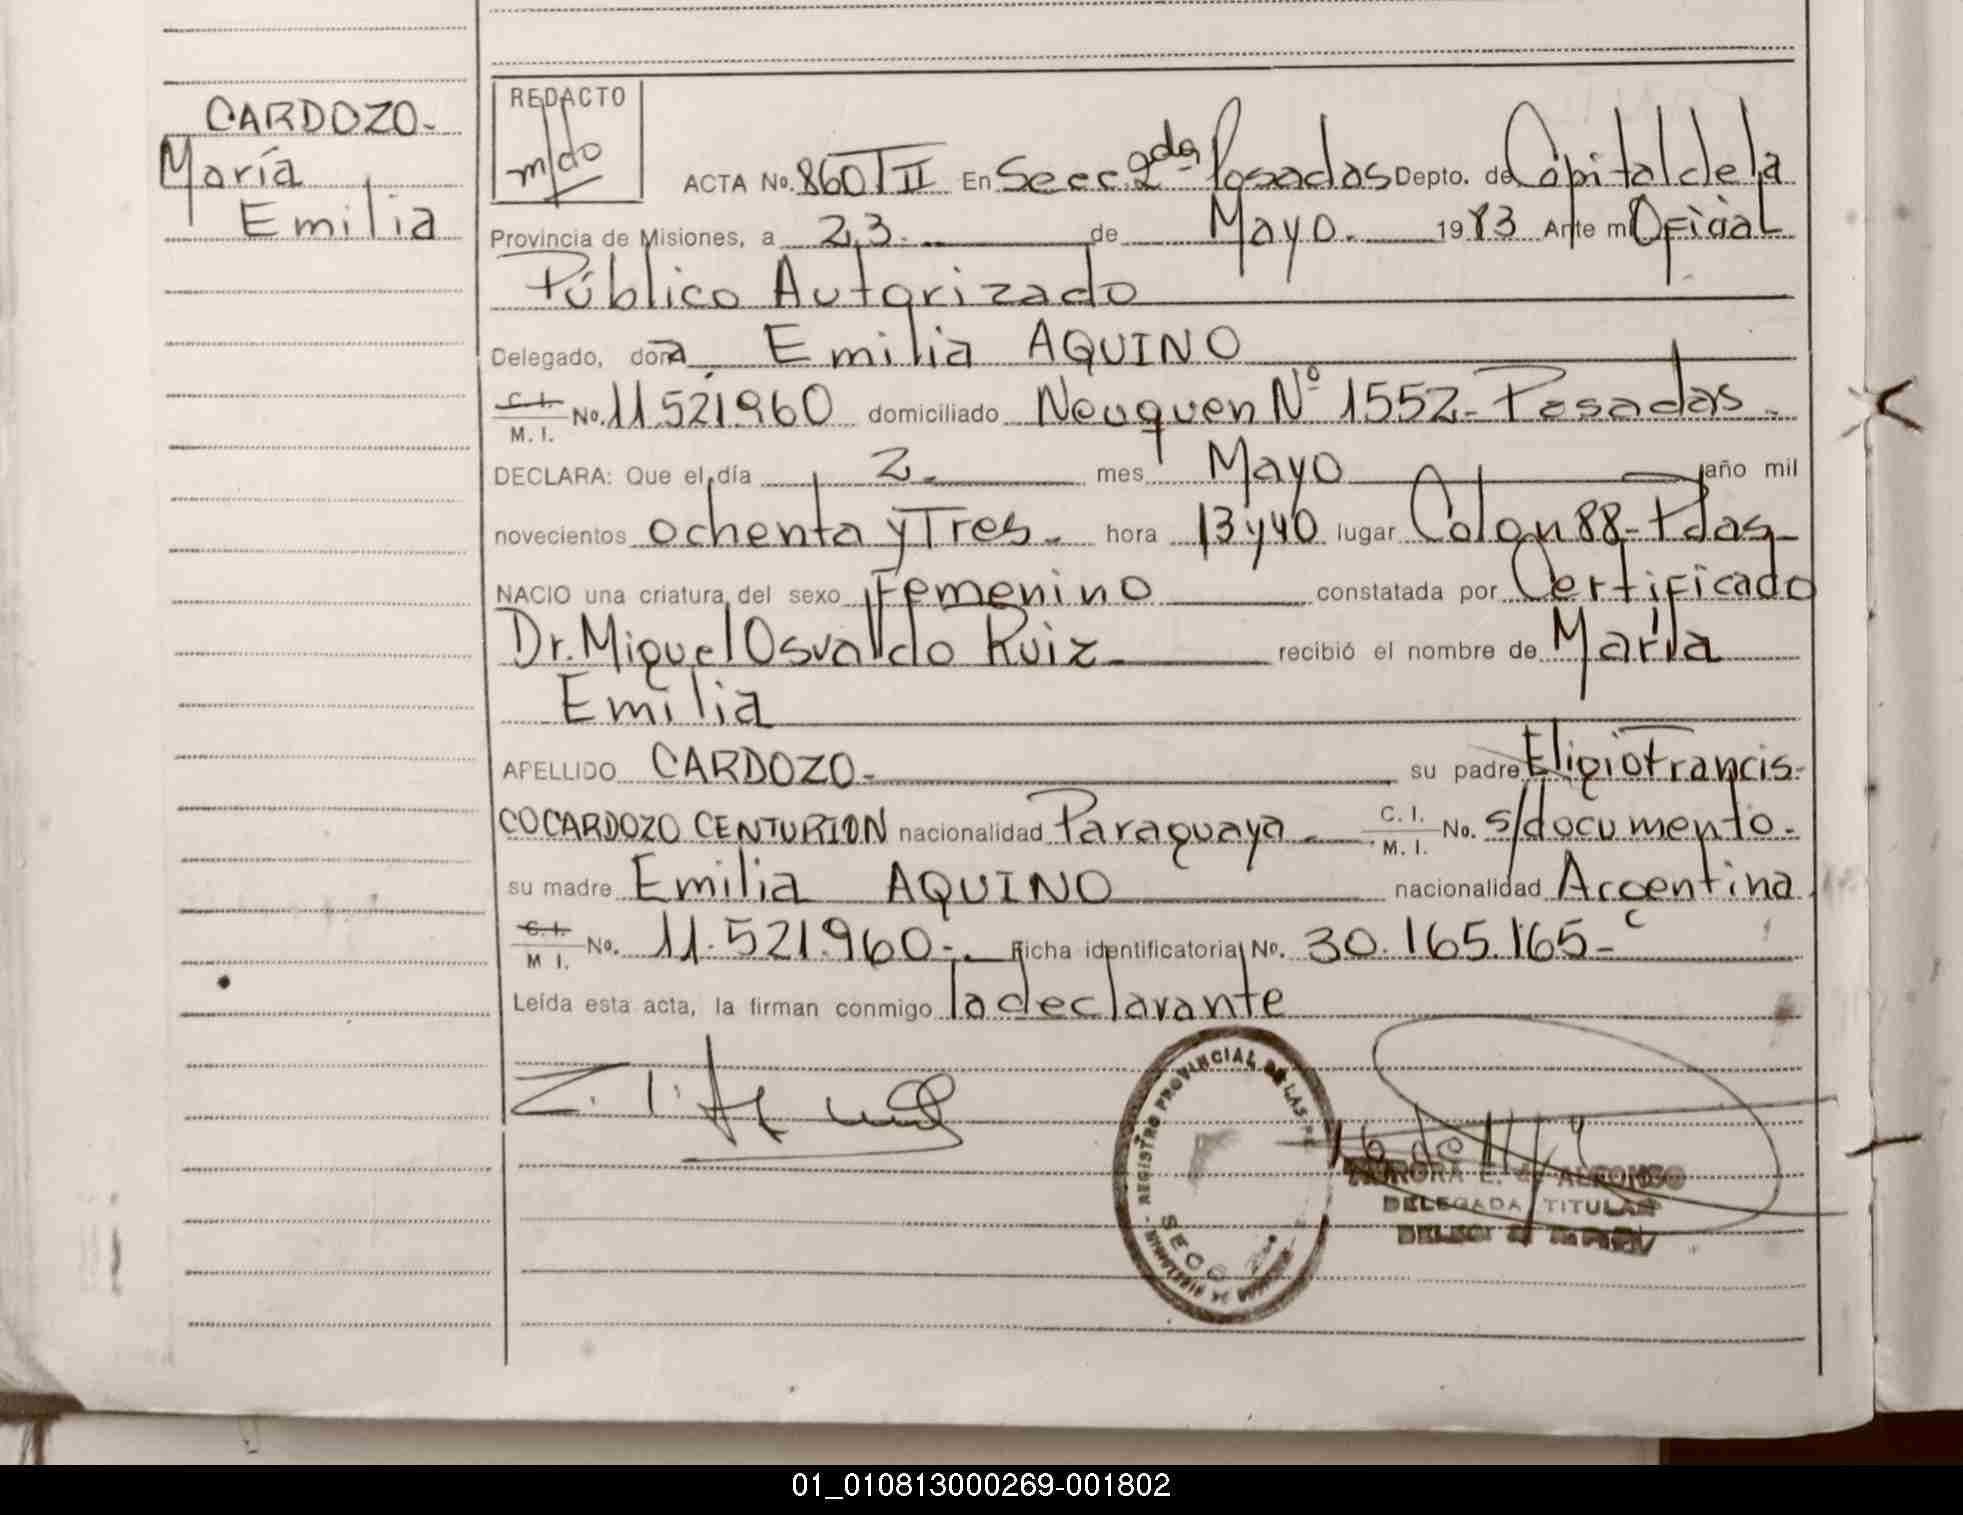 CARDOZO-
María
Emilia
REDACTO
m/do
ACTA No. 860 T II En Secc. 2da Posadas Depto. de Capital de la
Provincia de Misiones, a 23. de Mayo. 1983 Ante mi Oficial
Público Autorizado
Delegado, doña Emilia AQUINO
C. I.
M. I. No. 11.521.960 domiciliado Neuquen Nº 1552- Posadas.
DECLARA: Que el día 2. mes Mayo año mil
novecientos ochenta y Tres. hora 13 y 40 lugar Colon 88- Pdas
NACIO una criatura del sexo Femenino constatada por Certificado
Dr. Miguel Osvaldo Ruiz recibió el nombre de María
Emilia
APELLIDO CARDOZO- su padre Eligio Francis-
CO CARDOZO CENTURION nacionalidad Paraguaya- C. I. M. I. No. s/documento-
su madre Emilia AQUINO nacionalidad Argentina
C. I.
M I. No. 11.521.960- Ficha identificatoria No. 30.165.165-
Leída esta acta, la firman conmigo la declarante
REGISTRO PROVINCIAL DE LAS
SECC
AURORA E. de ALFONSO
DELEGADA TITULAR
01_010813000269-001802